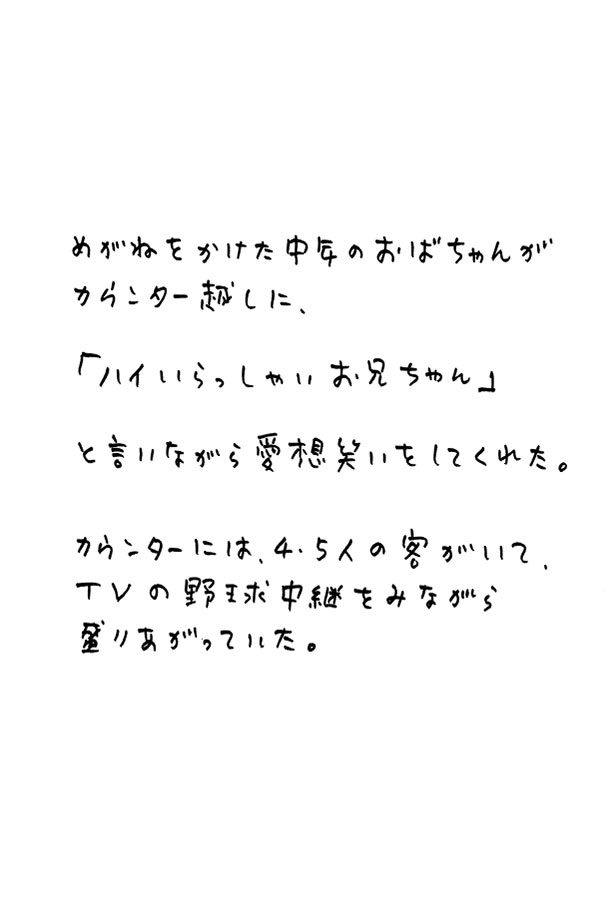 めがねをかけた中年のおばちゃんが
カウンター越しに、
「ハイいらっしゃいお兄ちゃん」
と言いながら愛想笑いをしてくれた。
カウンターには、4・5人の客がいて、
TVの野球中継をみながら
盛りあがっていた。